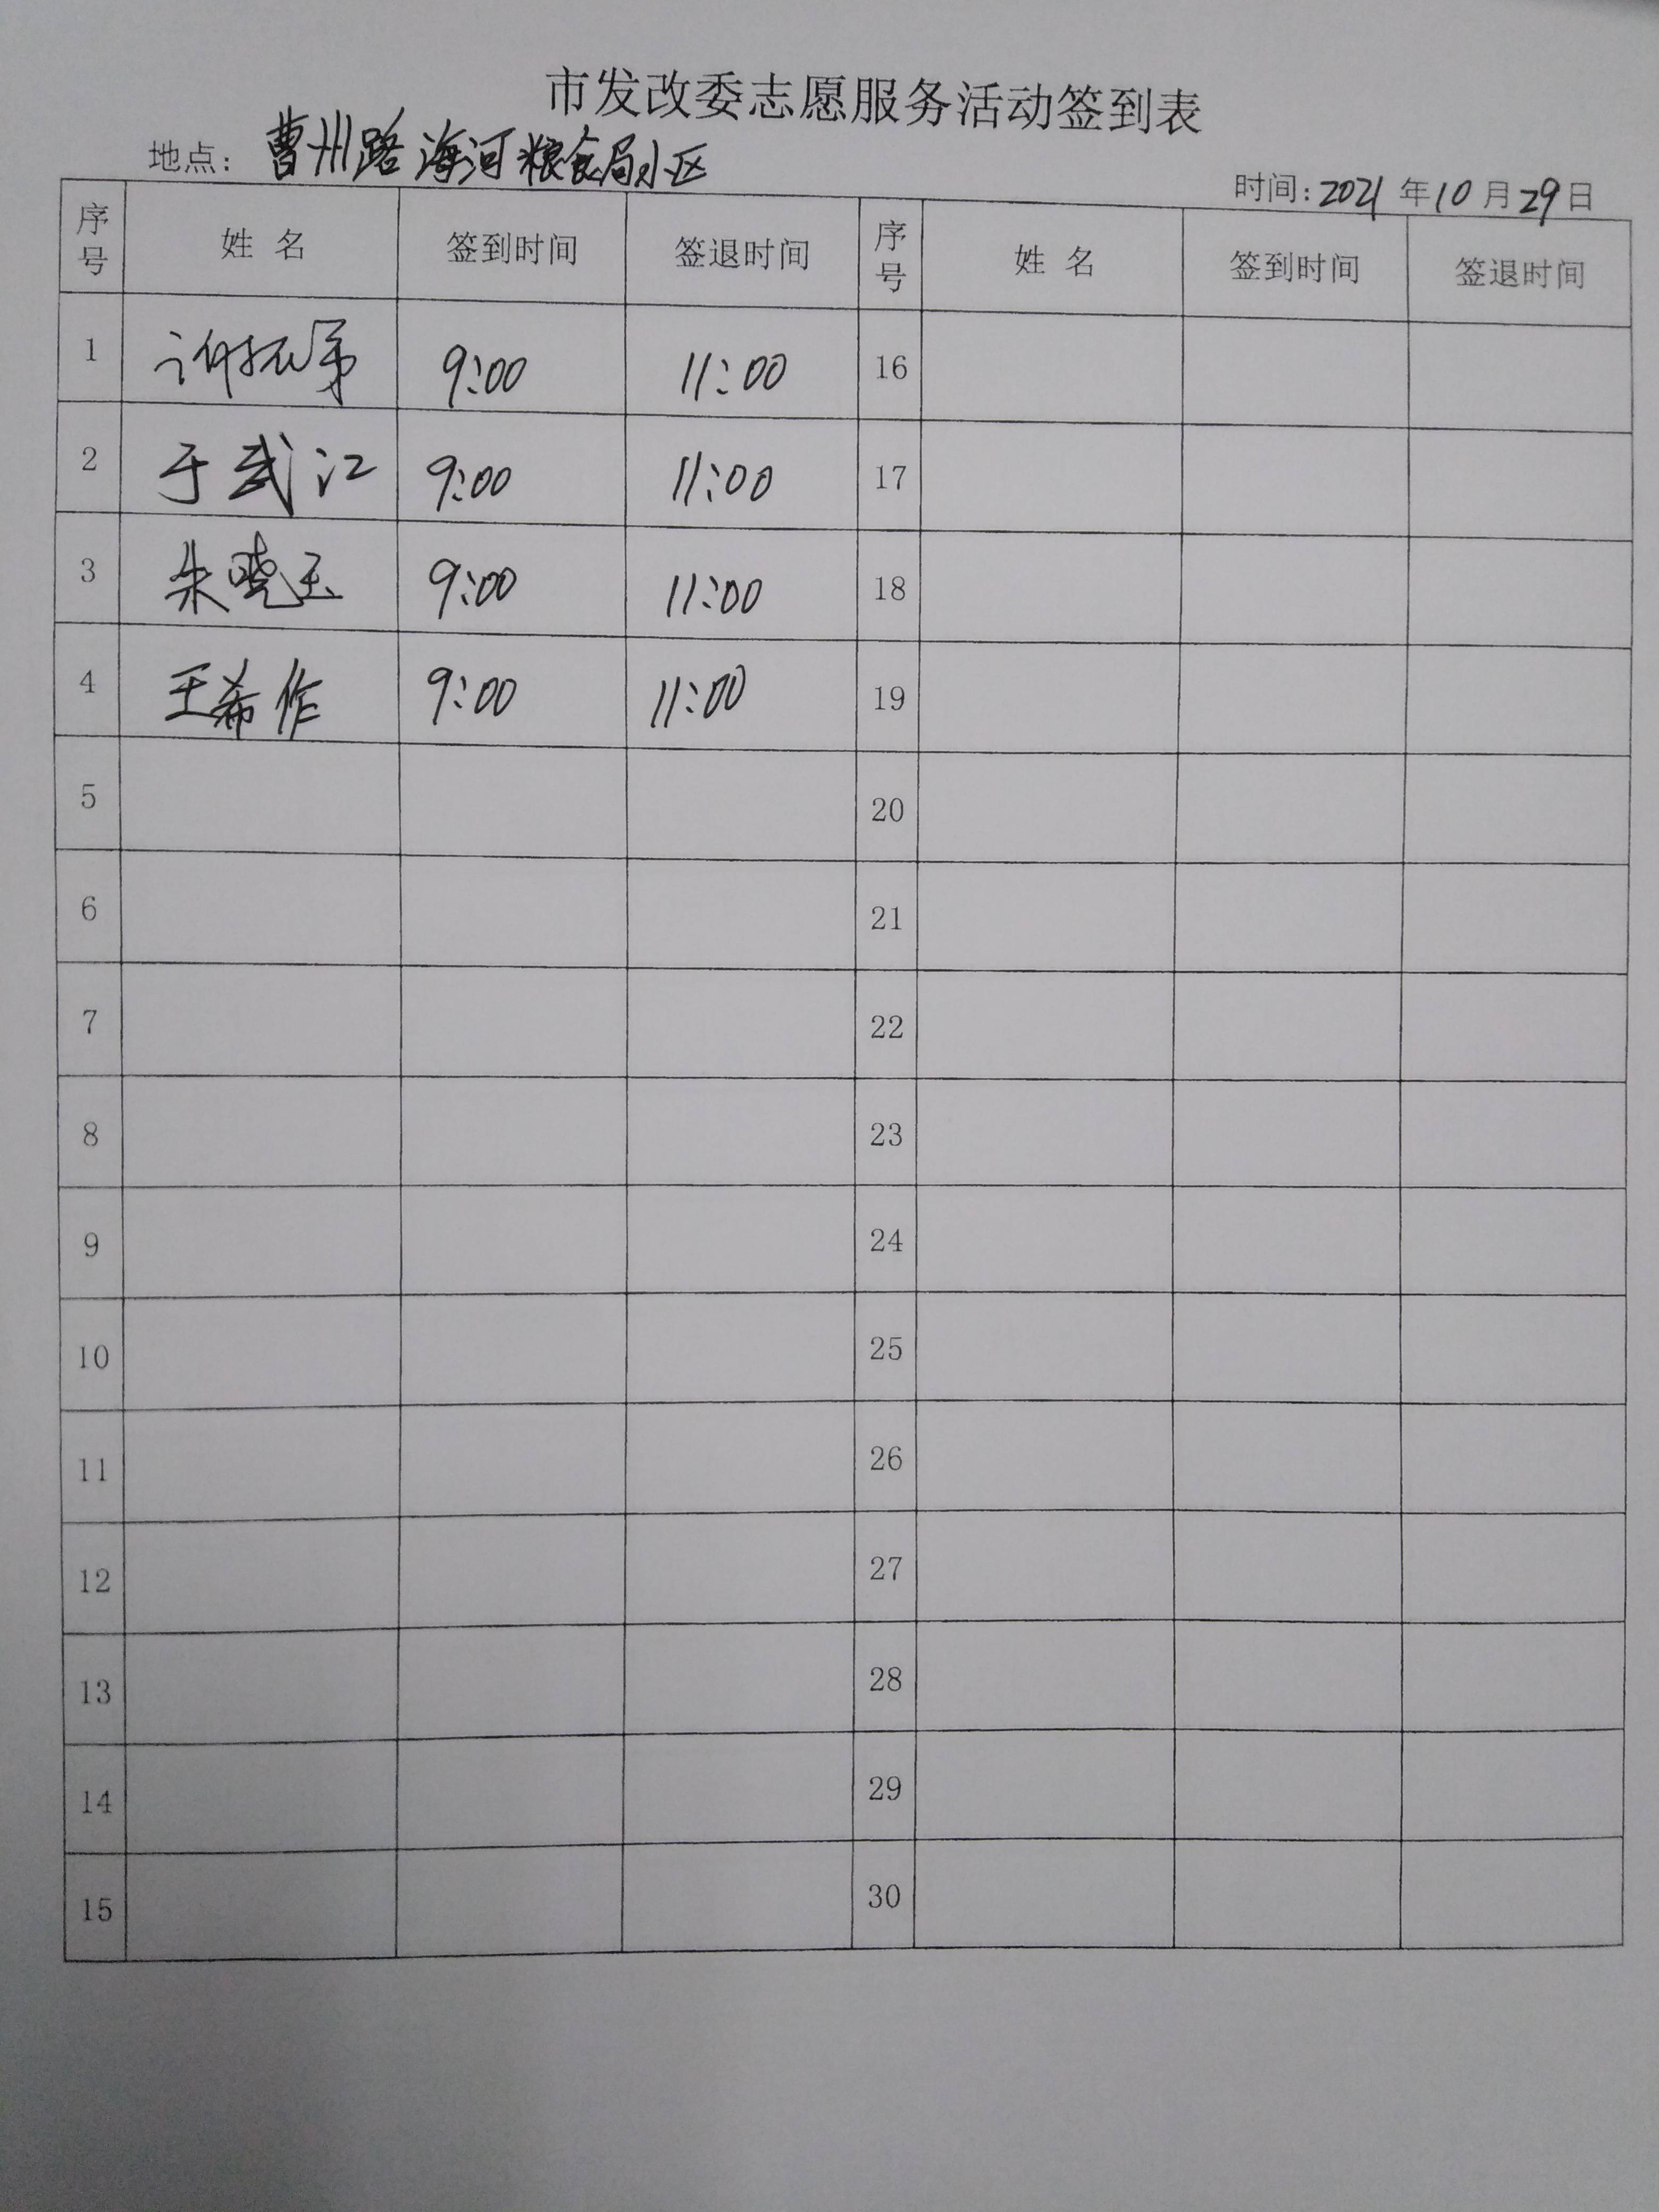 市发改委志愿服务活动签到表
地点: 曹州路 海河粮食局小区
时间: 2021 年 10 月 29 日
序号 姓 名 签到时间 签退时间 序号 姓 名 签到时间 签退时间
1 9:00 11:00 16
2 于武江 9:00 11:00 17
3 朱晓玉 9:00 11:00 18
4 王希作 9:00 11:00 19
5 20
6 21
7 22
8 23
9 24
10 25
11 26
12 27
13 28
14 29
15 30